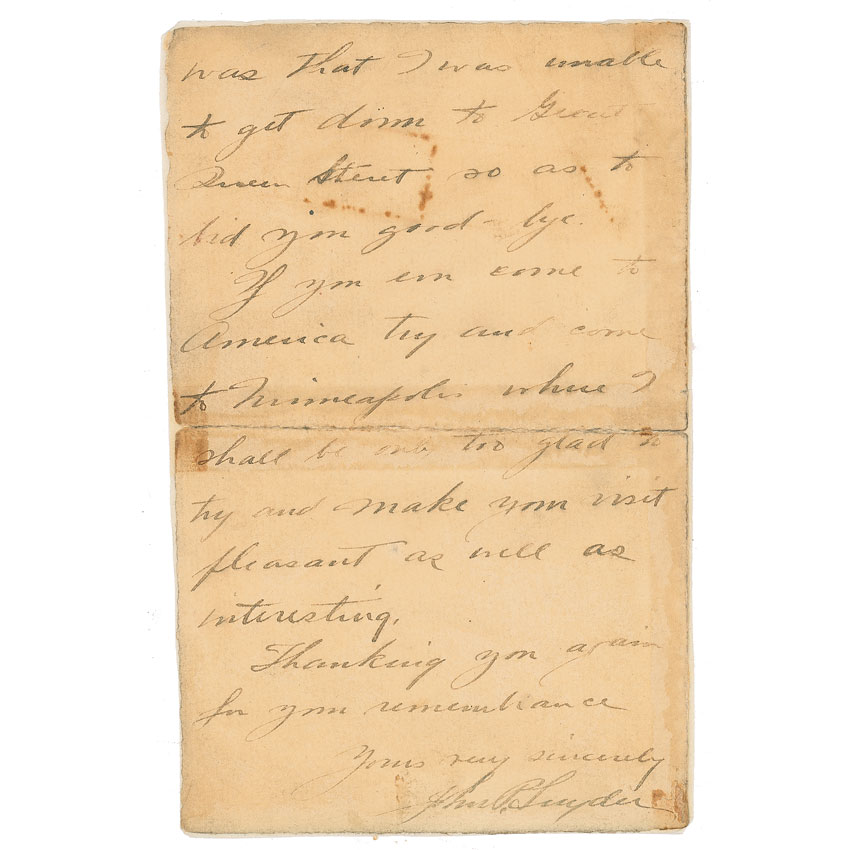 was that I was unable
to get down to Great
Queen Street so as to
bid you good-bye.
If you ever come to
America try and come
to Minneapolis where I
shall be only too glad to
try and make your visit
pleasant as well as
interesting.
Thanking you again
for your remembrance
Yours very sincerely
John P. Snyder